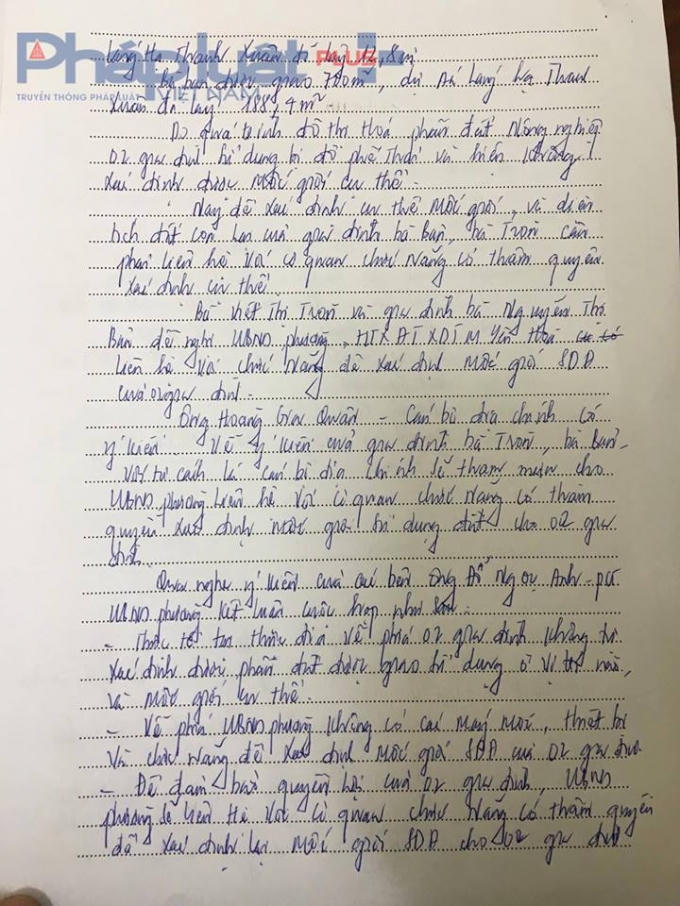 Pháp luật PLUS
TRUYỀN THÔNG PHÁP LUẬT VIỆT NAM
Láng Hạ Thanh Xuân đã lấy 12,8m²
bà bạn được giao 700m², dự án Láng Hạ Thanh
Xuân đã lấy 188,4m².
Do quá trình đô thị hoá phần đất nông nghiệp
02 gia đình sử dụng bị đổ phế thải và hiện không
xác định được mốc giới cụ thể.
Nay để xác định cụ thể mốc giới, và diện
tích đất còn lại của gia đình bà Bạn, bà Tròn cần
phải liên hệ với cơ quan chức năng có thẩm quyền
xác định cụ thể.
Bà Thị Tròn và gia đình bà Nguyễn Thị
Bạn đề nghị UBND phường, HTX Yên Hoà
liên hệ với chức năng để xác định mốc giới SDĐ
của 02 gia đình.
Ông Hoàng Gia Quân - Cán bộ địa chính có
ý kiến. Về ý kiến của gia đình bà Tròn, bà Bạn
với tư cách là cán bộ địa chính sẽ tham mưu cho
UBND phường liên hệ với cơ quan chức năng có thẩm
quyền xác định mốc giới sử dụng đất cho 02 gia
đình.
Qua nghe ý kiến của các bên ông Đỗ Ngọc Anh - PCT
UBND phường kết luận cuộc họp như sau.
- Thực tế tại thực địa về phía 02 gia đình không tự
xác định được phần đất được giao sử dụng ở vị trí nào,
và mốc giới cụ thể.
- Về phía UBND phường không có các máy móc, thiết bị
và chức năng để xác định mốc giới SDĐ của 02 gia đình
- Để đảm bảo quyền lợi của 02 gia đình, UBND
phường sẽ liên hệ với cơ quan chức năng có thẩm quyền
để xác định lại mốc giới SDĐ cho 02 gia đình